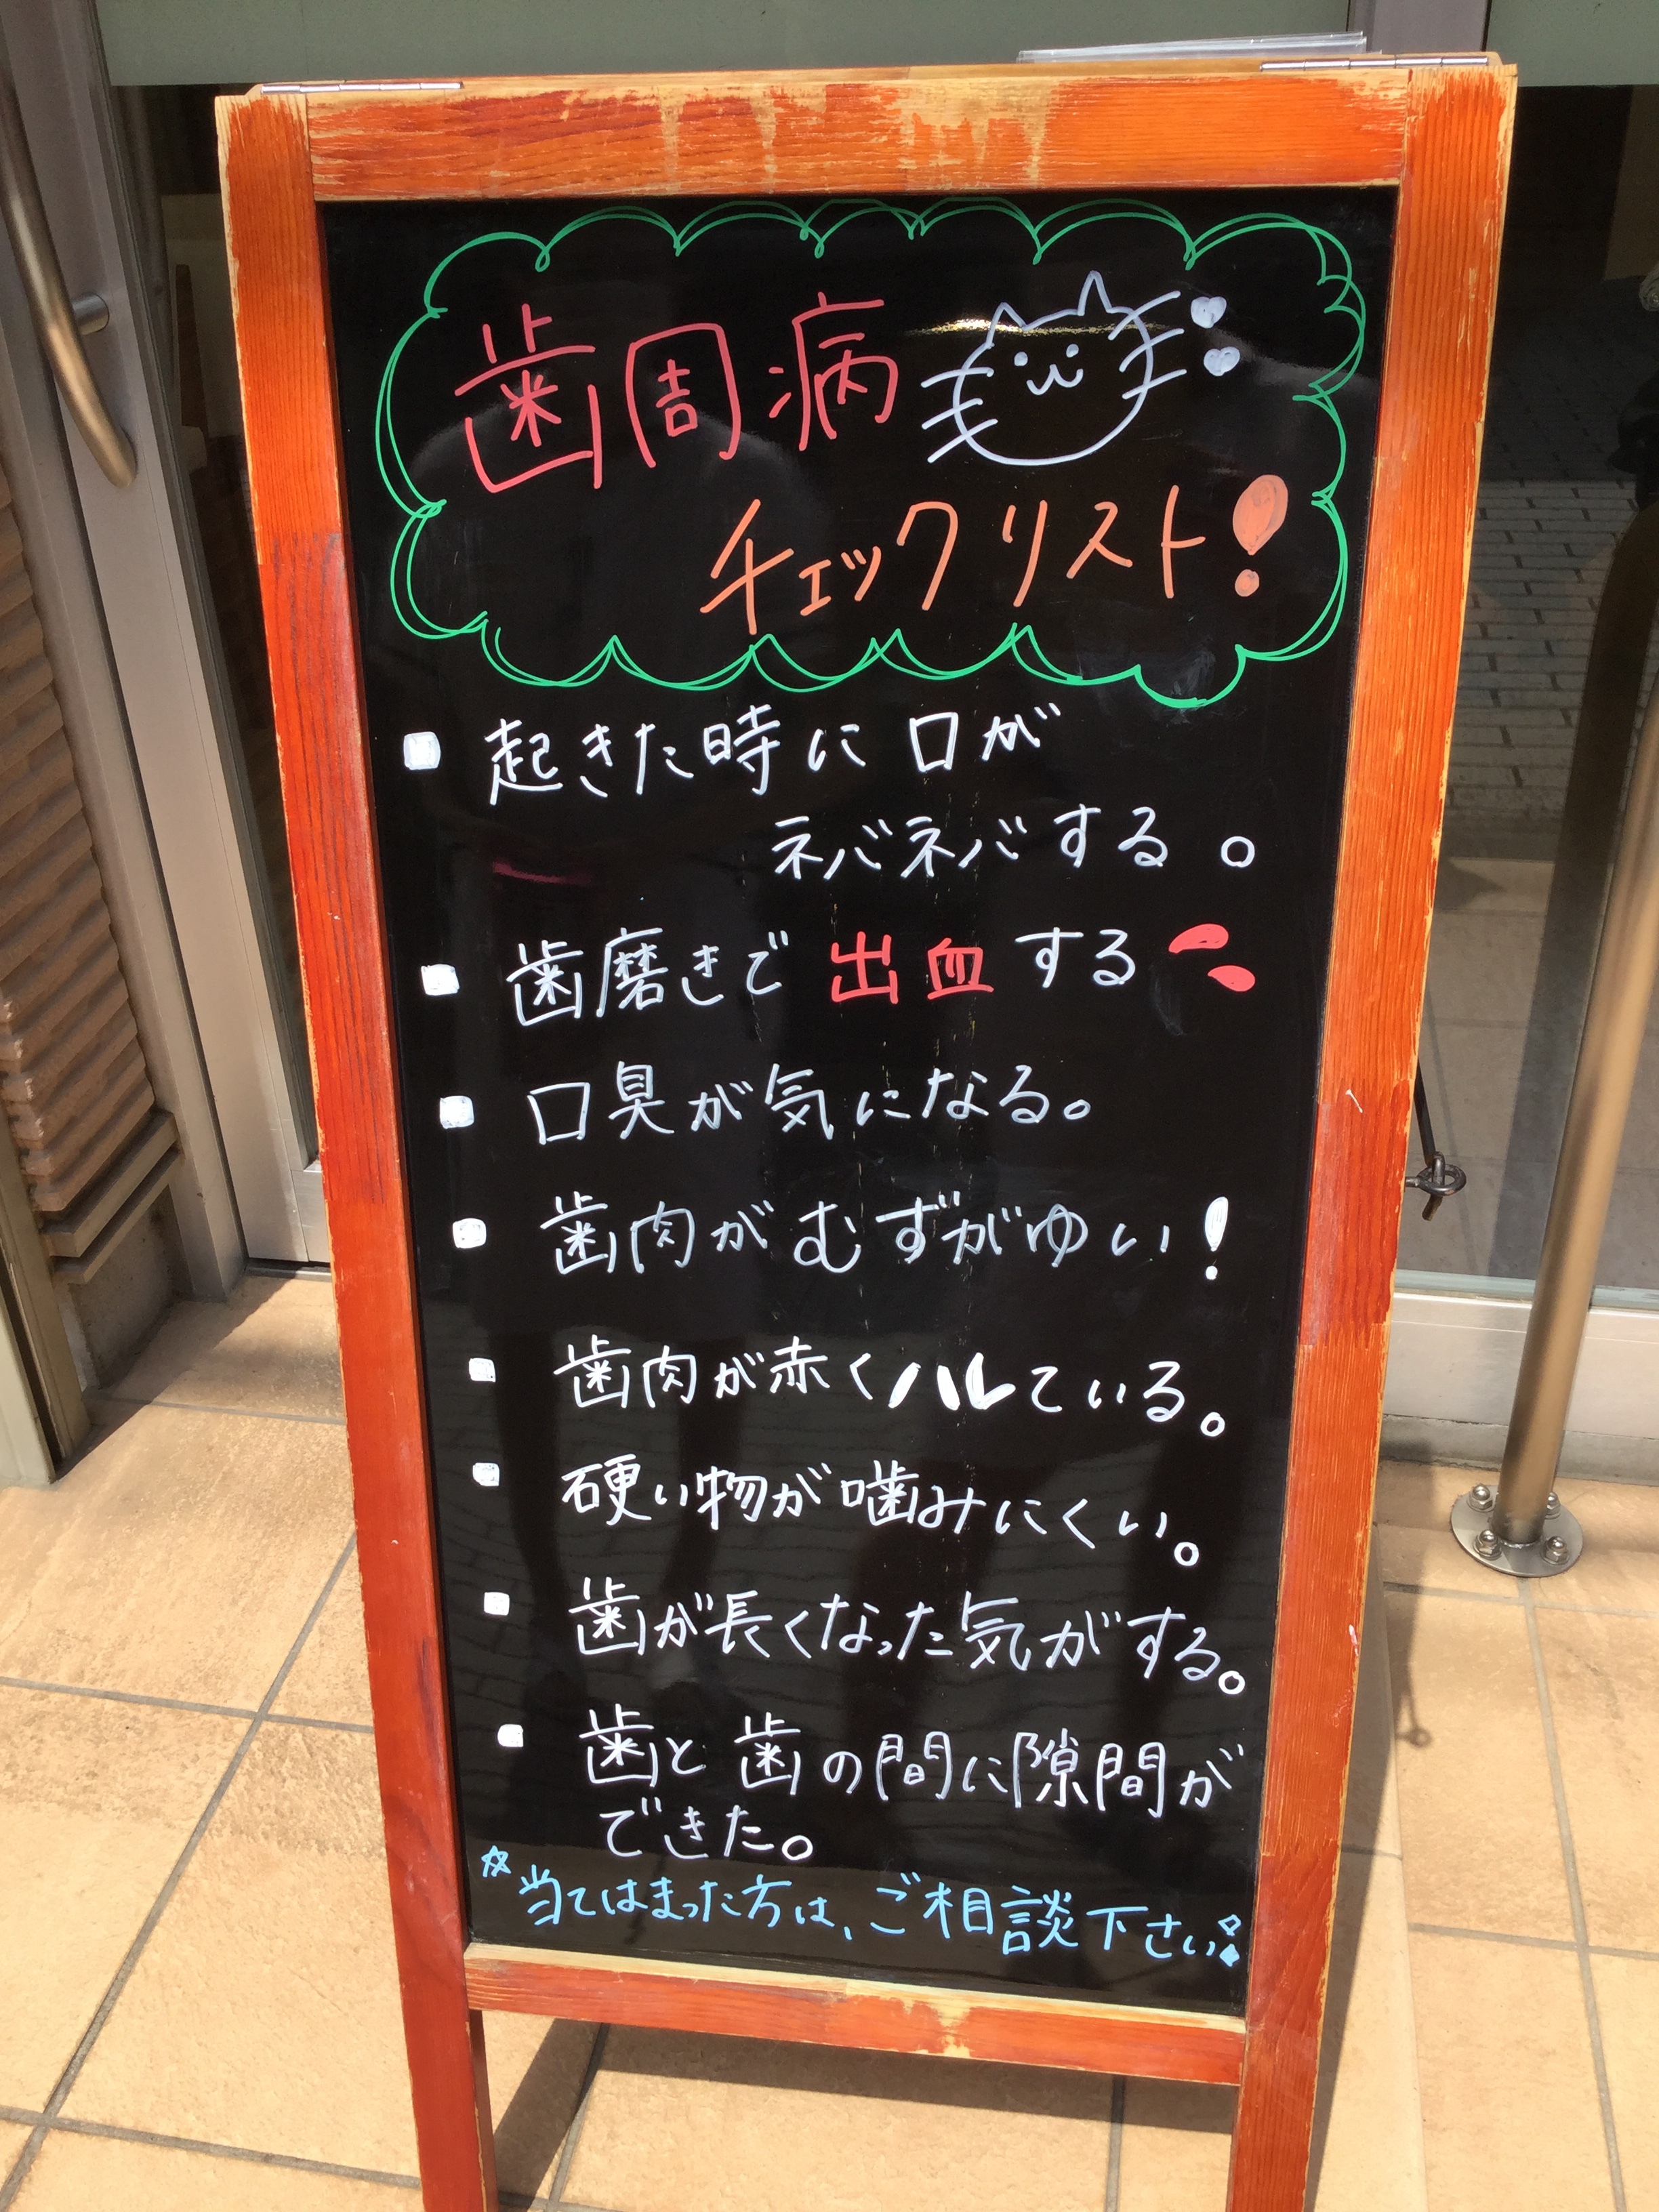 歯周病
チェックリスト!
▪ 起きた時に口が
ネバネバする。
▪ 歯磨きで出血する
▪ 口臭が気になる。
▪ 歯肉がむずがゆい!
▪ 歯肉が赤くハレている。
▪ 硬い物が噛みにくい。
▪ 歯が長くなった気がする。
▪ 歯と歯の間に隙間が
できた。
☆当てはまった方は、ご相談下さい